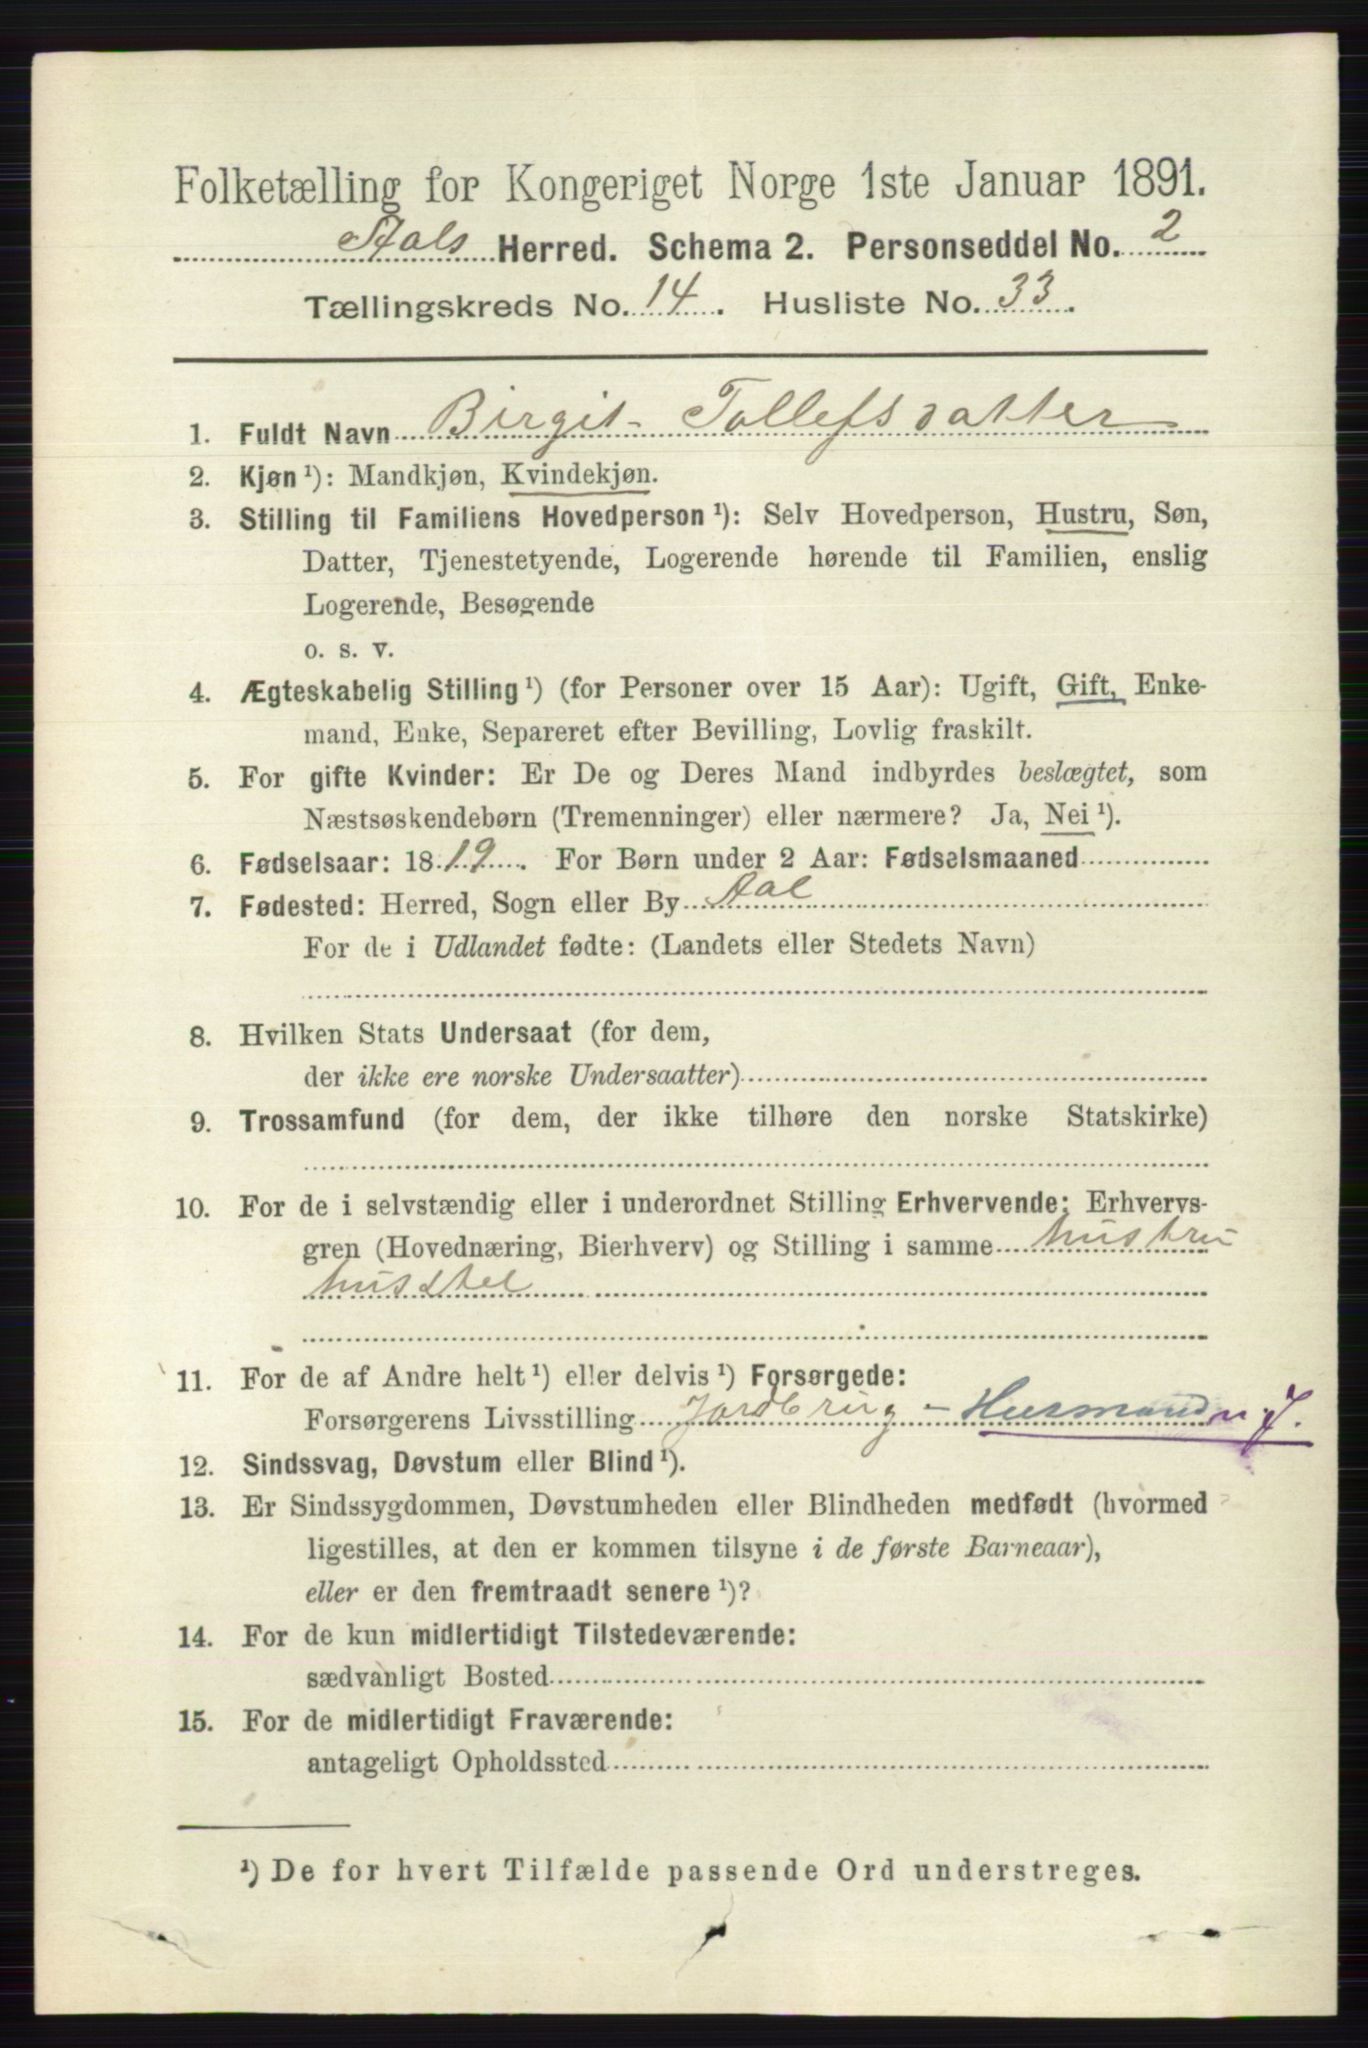 Folketælling for Kongeriget Norge 1ste Januar 1891.
Aals Herred. Schema 2. Personseddel No. 2
Tællingskreds No. 14. Husliste No. 33.
1. Fuldt Navn Birgit Tollefsdatter
2. Kjøn ¹): Mandkjøn, Kvindekjøn.
3. Stilling til Familiens Hovedperson ¹): Selv Hovedperson, Hustru, Søn,
Datter, Tjenestetyende, Logerende hørende til Familien, enslig
Logerende, Besøgende
o. s. v.
4. Ægteskabelig Stilling ¹) (for Personer over 15 Aar): Ugift, Gift, Enke-
mand, Enke, Separeret efter Bevilling, Lovlig fraskilt.
5. For gifte Kvinder: Er De og Deres Mand indbyrdes beslægtet, som
Næstsøskendebørn (Tremenninger) eller nærmere? Ja, Nei ¹).
6. Fødselsaar: 1819. For Børn under 2 Aar: Fødselsmaaned
7. Fødested: Herred, Sogn eller By Aal
For de i Udlandet fødte: (Landets eller Stedets Navn)
8. Hvilken Stats Undersaat (for dem,
der ikke ere norske Undersaatter)
9. Trossamfund (for dem, der ikke tilhøre den norske Statskirke)
10. For de i selvstændig eller i underordnet Stilling Erhvervende: Erhvervs-
gren (Hovednæring, Bierhverv) og Stilling i samme hustru
husstel
11. For de af Andre helt ¹) eller delvis ¹) Forsørgede:
Forsørgerens Livsstilling Jordbrug - Husmand m J.
12. Sindssvag, Døvstum eller Blind ¹).
13. Er Sindssygdommen, Døvstumheden eller Blindheden medfødt (hvormed
ligestilles, at den er kommen tilsyne i de første Barneaar),
eller er den fremtraadt senere ¹)?
14. For de kun midlertidigt Tilstedeværende:
sædvanligt Bosted
15. For de midlertidigt Fraværende:
antageligt Opholdssted
¹) De for hvert Tilfælde passende Ord understreges.